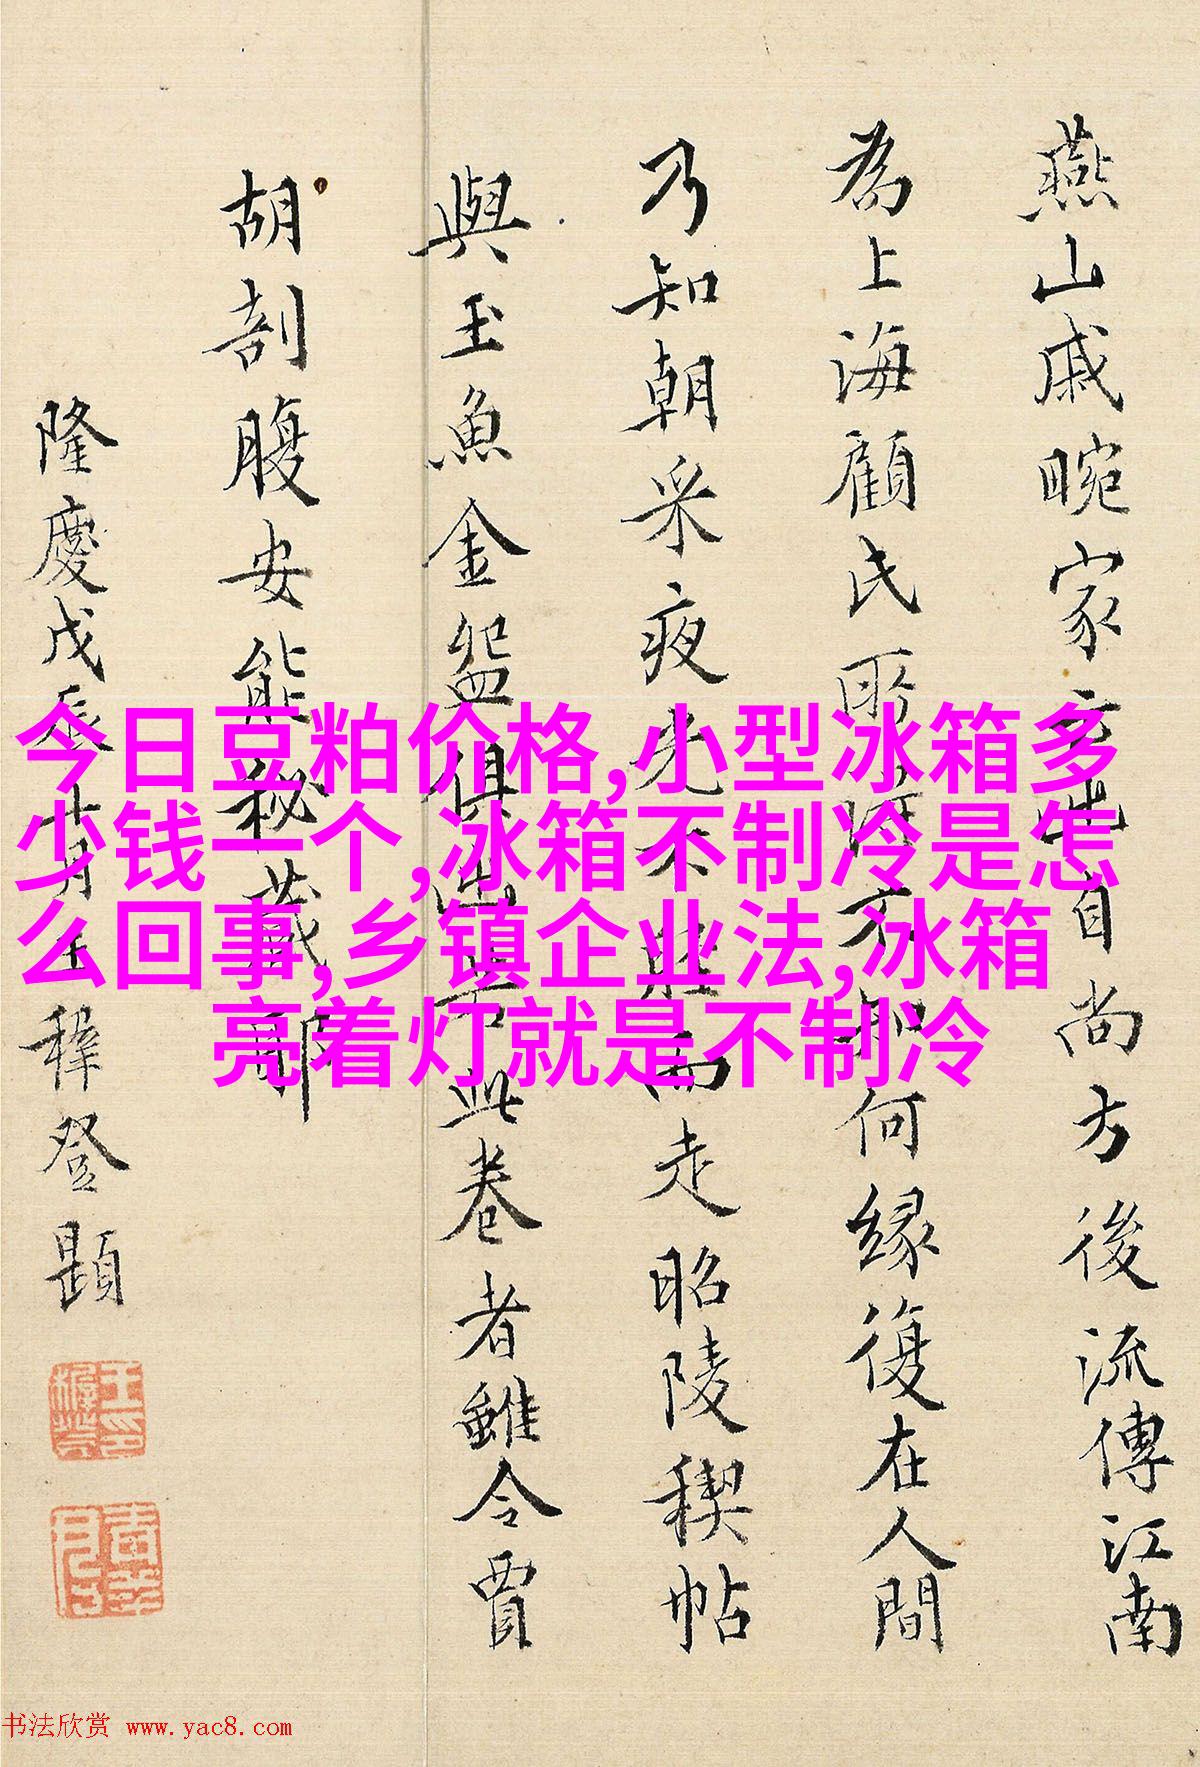 燕山戚畹家出自尚方後流傳江南
為上海顧氏所不知何緣復在人間
乃知朝采夜光不脛而走昭陵稧帖
與玉魚金盌俱出若此卷者雖令賈
胡剖腹安能秘藏耶
隆慶戊辰十月王穉登題
今日豆粕价格,小型冰箱多
少钱一个,冰箱不制冷是怎
么回事,乡镇企业法,冰箱
亮着灯就是不制冷
书法欣赏 www.yac8.com